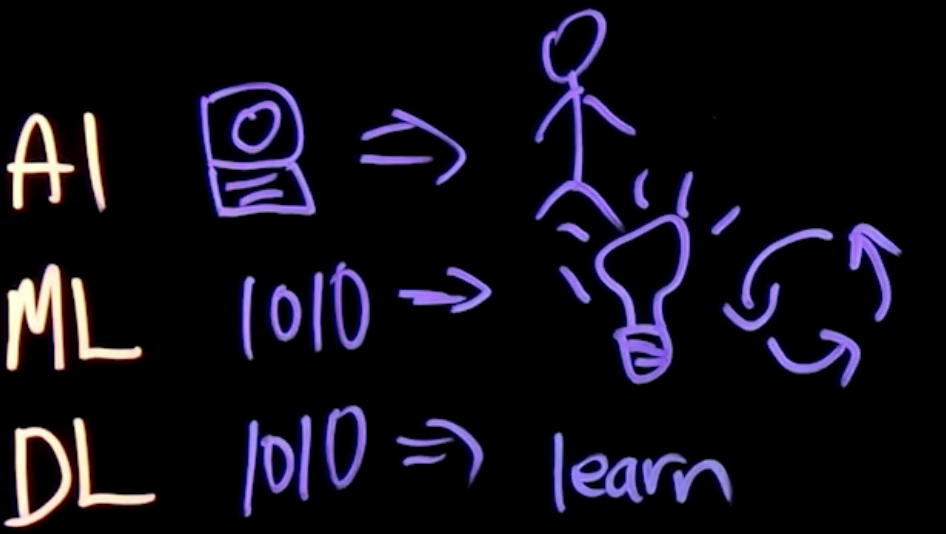 AI
ML 1010
DL 1010 learn